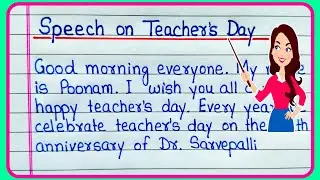 Speech on Teacher's Day
Good morning everyone. My
is Poonam. I wish you all
happy teacher's day. Every year
celebrate teacher's day on the
anniversary of Dr. Sarvepalli